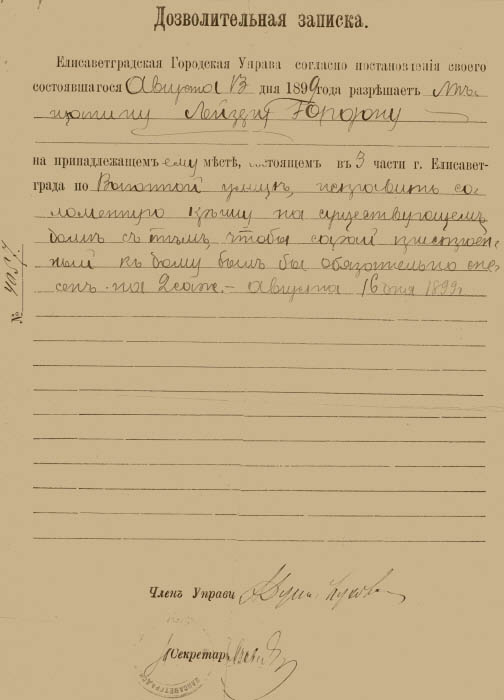 Дозволительная записка.
Елисаветградская Городская Управа согласно постановленія своего
состоявшагося Августа 13 дня 1899 года разрѣшаетъ Мѣ-
щанину Лейзеру Гордону
на принадлежащемъ ему мѣстѣ, состоящемъ въ 3 части г. Елисавет-
града по улицѣ, исправить со-
ломенную крышу на существующемъ
домѣ съ тѣмъ чтобы сарай пристроен-
ный къ дому былъ бы обязательно сне-
сенъ на 2 саж. – августа 16 дня 1899 г.
№
Членъ Управи
Секретарь